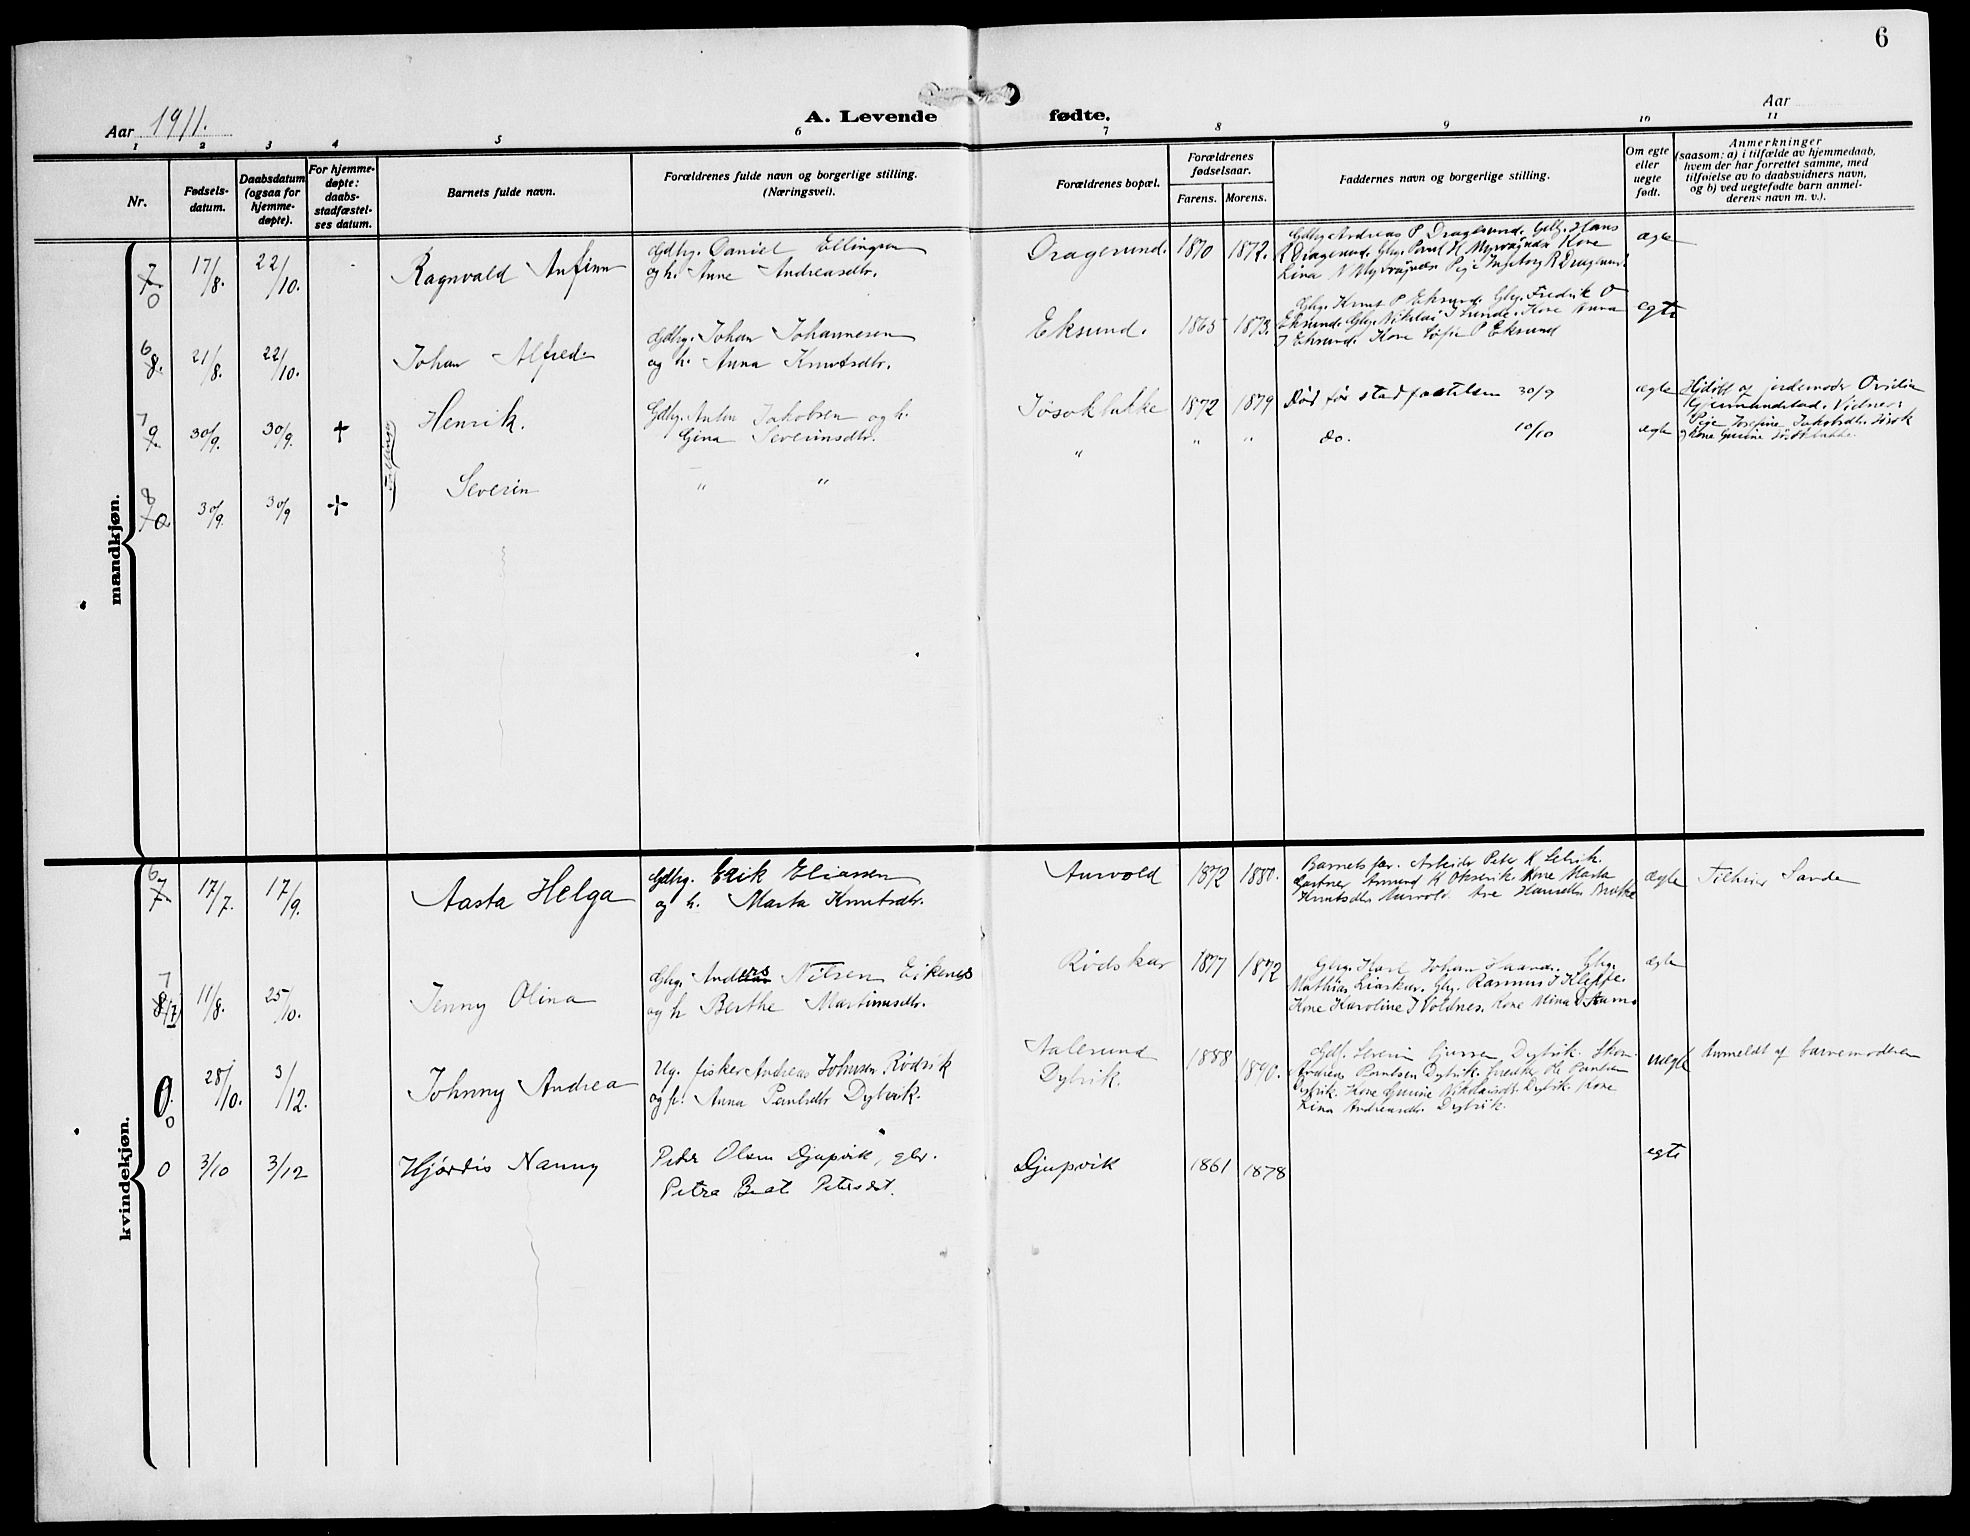 6
Aar 1911.
A. Levende fødte.
Aar
1 2 3 4 5 6 7 8 9 10 11
Nr.
Fødsels-
datum.
Daabsdatum
(ogsaa for
hjemme-
døpte).
For hjemme-
døpte:
daabs-
stadfæstel-
ses datum.
Barnets fulde navn.
Forældrenes fulde navn og borgerlige stilling.
(Næringsvei).
Forældrenes bopæl.
Forældrenes
fødselsaar.
Farens. Morens.
Faddernes navn og borgerlige stilling.
Om egte
eller
uegte
født.
Anmerkninger
(saasom: a) i tilfælde av hjemmedaab,
hvem der har forrettet samme, med
tilføielse av to daabsvidners navn,
og b) ved uegtefødte barn anmel-
derens navn m. v.).
mandkjøn.
17/8. 22/10. Ragnvald Anfinn
Gdbrg. Daniel Ellingsen
og h. Anne Andreasdtr.
Dragesund. 1870 1872.
Gdbrg. Andreas P Dragesund. Gbrg. Hans
R Dragesund. Gbrg. Paul H Myrvaagnes Kone
Lina Myrvaagnes Pige Ingeborg R Dragesund.
ægte
6 8. 21/8. 22/10. Johan Alfred
Gdbrg. Johan Johannesen
og h. Anna Knutsdtr.
Eksund. 1865 1873.
Gbrg. Knut P Eksund. Gbrg. Fredrik O
Eksund. Gbrg. Nikolai J Lunde. Kone Anna
J Eksund. Kone Sofie P Eksund
egte
9. 30/9. 30/9. † Henrik.
Gdbrg. Anton Jakobsen og h.
Gina Severinsdtr.
Jøsoklukke 1872 1879 Død før stadfæstelsen 30/9 ægte
Hjdøbt av jordemoder Ovidia
Gjermundstad. Vidner:
Pige Josefine Jakobsdtr. Jøsok
og Kone Gurine Jøsoklukke.
8 10. 30/9. 30/9 † Severin
" " " " " do. 10/10 ægte
Tvillinger
kvindekjøn.
6 7 17/7. 17/9. Aasta Helga
Gdbrg. Erik Eliassen
og h. Marta Knutsdtr.
Aurvold 1872 1880.
Barnets far. Arbeider Peter K
Gartner Amund K Oksevik. Kone Marta
Knutsdtr Aurvold.
ægte Tilhører Sande
7 8 11/8. 25/10. Jenny Olina
Gbrg. Anders Nilsen Eikenes
og h Berthe Martinusdtr.
Rødskar 1877 1872
Gbrg. Karl Johan Gbrg.
Mathias Liaskar. Gbrg. Rasmus J Kleppe.
Kone Karoline J Voldnes. Kone Mina
ægte
28/10. 3/12. Johnny Andrea
Ug. fisker Andreas Johnsen Rødvik
og p. Anna Paulsdtr Dybvik.
Aalesund
Dybvik.
1888 1890.
Severin Dybvik.
Andreas Paulsen Dybvik. Paulsen
Dybvik. Kone Gurine Nikolaisdtr Dybvik. Kone
Lina Andreasdtr. Dybvik.
uægte Anmeldt af barnemoderen
0 3/10 3/12 Hjørdis Nanny
Peder Olsen Djupvik, gbr.
Petra Beat Petersdat.
Djupvik 1861 1878 egte